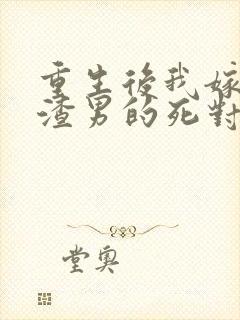 重生後我嫁
渣男的死對
堂奧